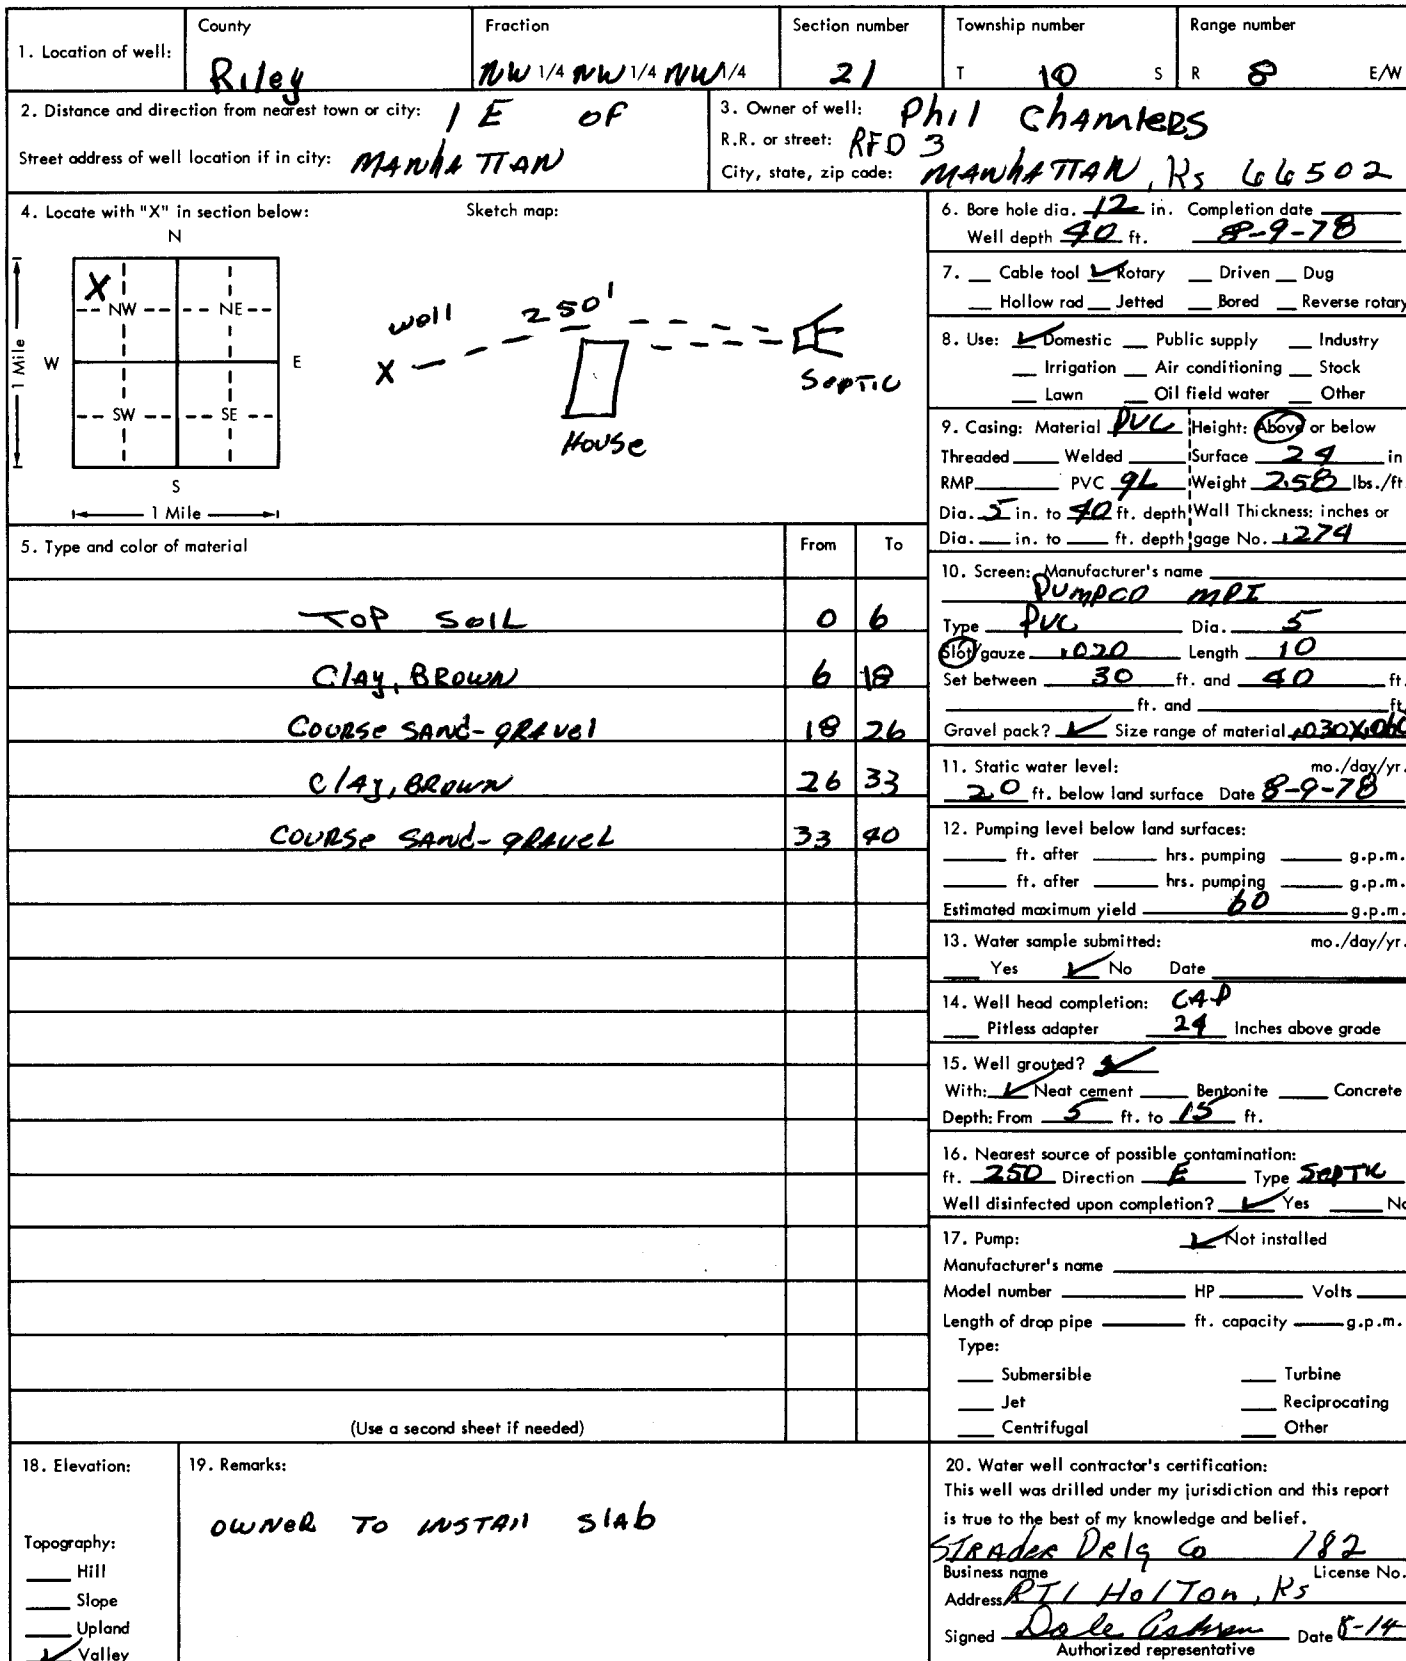 1. Location of well:
County
Riley
Fraction
NW 1/4 NW 1/4 NW 1/4
Section number
21
Township number
T 10 S
Range number
R 8 E/W
2. Distance and direction from nearest town or city: 1 E OF
Street address of well location if in city: MANHATTAN
3. Owner of well: Phil Chambers
R.R. or street: RFD 3
City, state, zip code: MANHATTAN, Ks 66502
4. Locate with "X" in section below:
Sketch map:
N
X
NW NE
W E
SW SE
S
1 Mile
1 Mile
well 250'
X
House
Septic
5. Type and color of material From To
TOP SOIL 0 6
Clay, BROWN 6 18
COURSE SAND-GRAVEl 18 26
Clay, BROWN 26 33
COURSE SAND-GRAVEL 33 40
(Use a second sheet if needed)
6. Bore hole dia. 12 in. Completion date
Well depth 40 ft. 8-9-78
7. __ Cable tool ✓ Rotary __ Driven __ Dug
__ Hollow rod __ Jetted __ Bored __ Reverse rotary
8. Use: ✓ Domestic __ Public supply __ Industry
__ Irrigation __ Air conditioning __ Stock
__ Lawn __ Oil field water __ Other
9. Casing: Material PVC Height: Above or below
Threaded ____ Welded ____ Surface 24 in
RMP ____ PVC gL Weight 2.58 lbs./ft.
Dia. 5 in. to 40 ft. depth Wall Thickness: inches or
Dia. __ in. to __ ft. depth gage No. .274
10. Screen: Manufacturer's name
PUMPCO MPI
Type PVC Dia. 5
Slot/gauze .020 Length 10
Set between 30 ft. and 40 ft.
____ ft. and ____ ft.
Gravel pack? ✓ Size range of material .030X.060
11. Static water level: mo./day/yr.
20 ft. below land surface Date 8-9-78
12. Pumping level below land surfaces:
____ ft. after ____ hrs. pumping ____ g.p.m.
____ ft. after ____ hrs. pumping ____ g.p.m.
Estimated maximum yield 60 g.p.m.
13. Water sample submitted: mo./day/yr.
__ Yes ✓ No Date ____
14. Well head completion: CAP
__ Pitless adapter 24 Inches above grade
15. Well grouted? ✓
With: ✓ Neat cement __ Bentonite __ Concrete
Depth: From 5 ft. to 15 ft.
16. Nearest source of possible contamination:
ft. 250 Direction E Type SEPTIC
Well disinfected upon completion? ✓ Yes __ No
17. Pump: ✓ Not installed
Manufacturer's name ____
Model number ____ HP ____ Volts ____
Length of drop pipe ____ ft. capacity ____ g.p.m.
Type:
__ Submersible __ Turbine
__ Jet __ Reciprocating
__ Centrifugal __ Other
18. Elevation:
Topography:
__ Hill
__ Slope
__ Upland
✓ Valley
19. Remarks:
OWNER TO INSTAll SlAb
20. Water well contractor's certification:
This well was drilled under my jurisdiction and this report
is true to the best of my knowledge and belief.
STRADER DRlg Co 182
Business name License No.
Address RT1 Holton, Ks
Signed Dale Date 8-14
Authorized representative